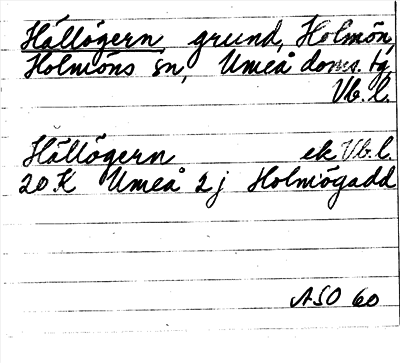 Hällögern, grund, Holmön,
Holmöns sn, Umeå doms. tg
Vb. l.
Hällögern ek Vb. l.
20 K Umeå 2 j Holmögadd
ASO 60